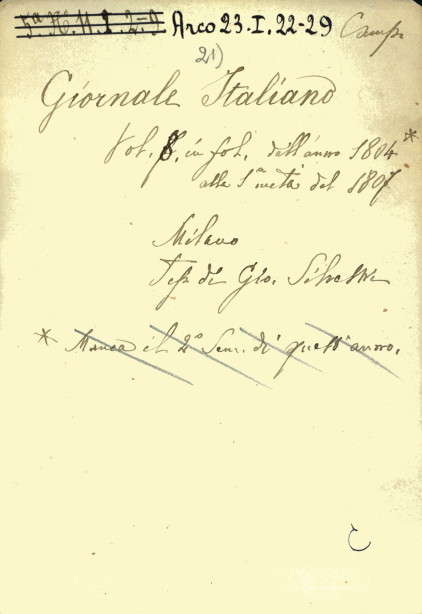 5ª H. 11. I. 2-9 Arco 23.I.22-29 Camp.
21)
Giornale Italiano
Vol. 8. in fol. dall'anno 1804 *
alla 1ª metà del 1807
Milano
Tip. di Gio. Silvestri
* Manca il 2º Sem. di quest'anno.
C